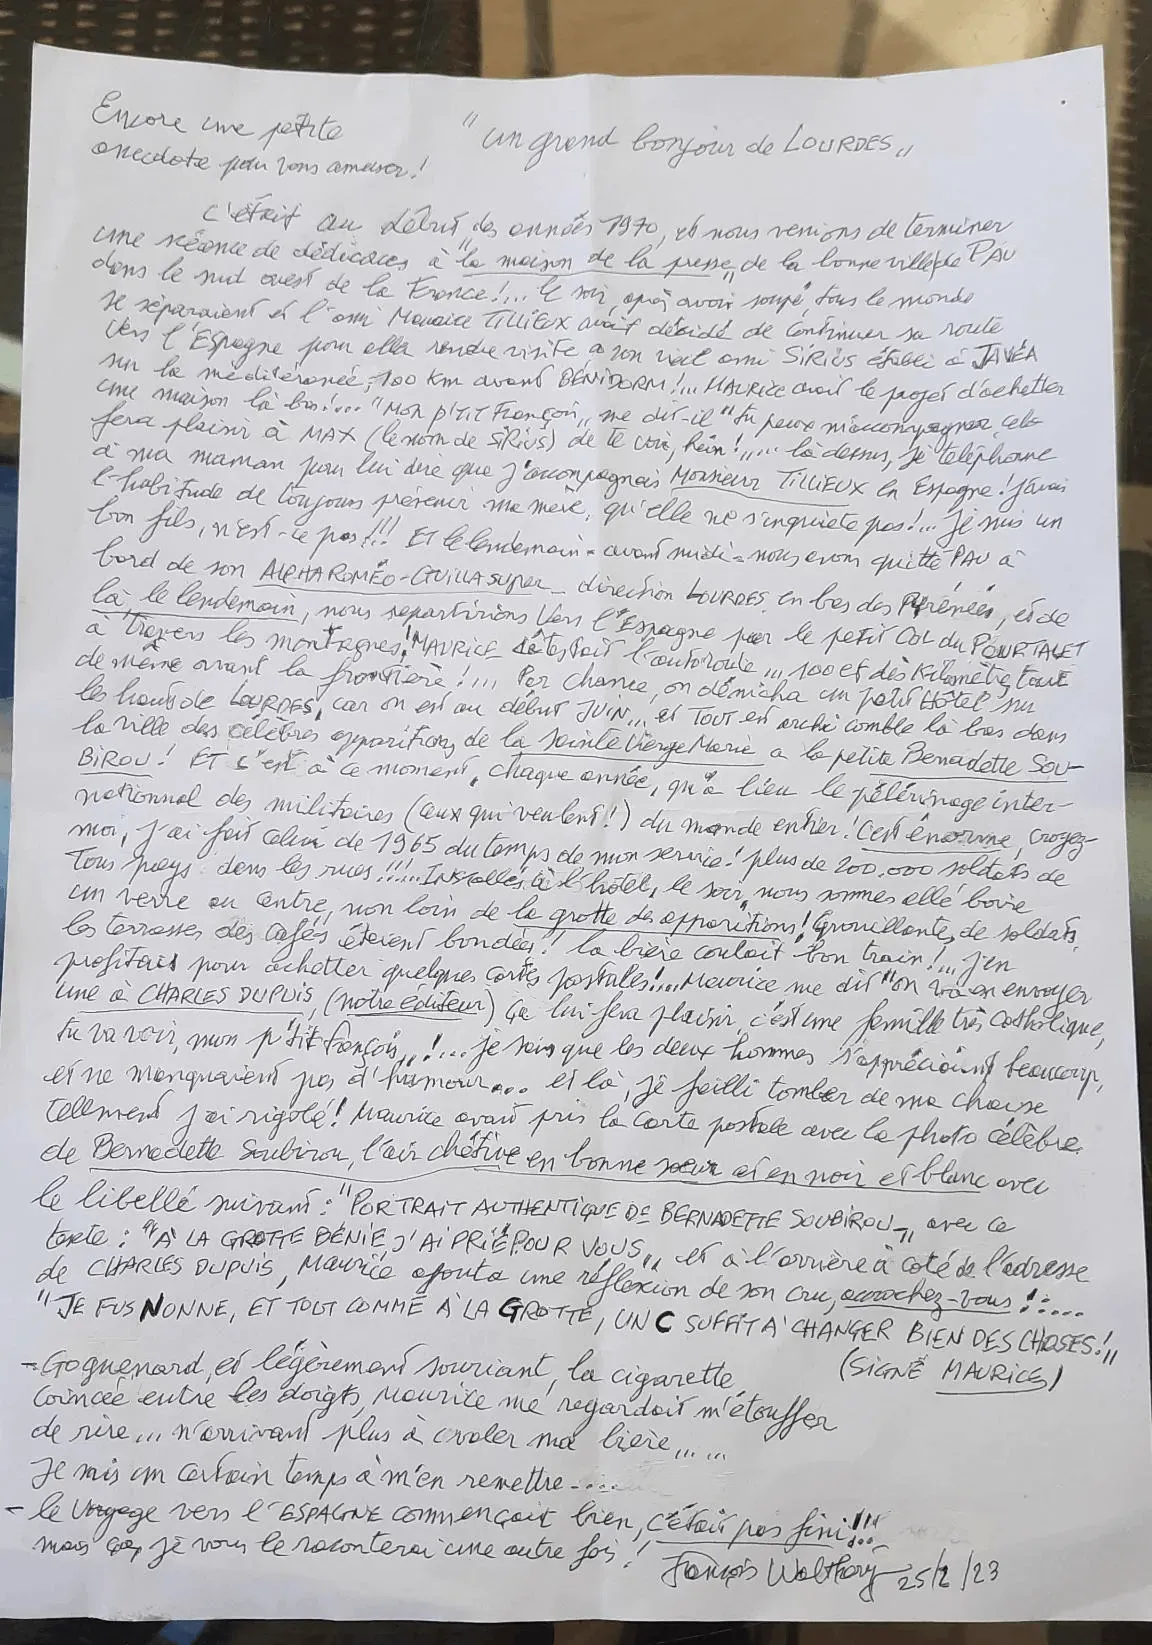 Encore une petite
anecdote pour vous amuser!
"un grand bonjour de LOURDES"
C'était au début des années 1970, et nous venions de terminer
une séance de dédicaces à "la maison de la presse" de la bonne ville de PAU
dans le sud ouest de la France!... le soir, après avoir soupé, tous le monde
se séparaient et l'ami Maurice TILLIEUX avait décidé de continuer sa route
vers l'Espagne pour aller rendre visite à son vieil ami SIRIUS établi à JAVÉA
sur la méditéranée, 100 Km avant BENIDORM!... MAURICE avait le projet d'achetter
une maison là bas!... "Mon p'tit François" me dit-il "tu peux m'accompagner, cela
fera plaisir à MAX (le nom de SIRIUS) de te voir, hein!"... là dessus, je téléphone
à ma maman pour lui dire que j'accompagnais Monsieur TILLIEUX en Espagne! J'avais
l'habitude de toujours prévenir ma mère, qu'elle ne s'inquiète pas!... Je suis un
bon fils, n'est-ce pas!!! Et le lendemain - avant midi - nous avons quitté PAU à
bord de son ALPHA ROMÉO-GIULLIA super - direction LOURDES, en bas des Pyrénées, et de
là, le lendemain, nous repartirions vers l'Espagne par le petit COL du POURTALET
à travers les montagnes! MAURICE détestait l'autoroute... 100 et dès Kilomètres, tout
de même avant la frontière!... Par chance, on dénicha un petit Hôtel sur
les hauts de LOURDES, car on est au début JUIN... et TOUT est archi comble là bas dans
la ville des célèbres apparitions de la Sainte Vierge Marie a la petite Bernadette SOU-
BIROU! ET c'est à ce moment, chaque année, qu'a lieu le pélérinage inter-
nationnal des militaires (ceux qui veulent!) du monde entier! C'est énorme, croyez-
moi, j'ai fait celui de 1965 du temps de mon service! plus de 200.000 soldats de
Tous pays dans les rues!!!... INSTALLÉS à l'hôtel, le soir, nous sommes allé boire
un verre au centre, non loin de la grotte des apparitions! Grouillantes de soldats,
les terrasses des cafés étaient bondées!! la bière coulait bon train!... j'en
profitais pour achetter quelques cartes postalles!... Maurice me dit "on va en envoyer
une à CHARLES DUPUIS, (notre éditeur) ça lui fera plaisir, c'est une famille très catholique,
tu va voir, mon p'tit françois"!... je sais que les deux hommes s'appréciaient beaucoup,
et ne manquaient pas d'humour... et là, je failli tomber de ma chaise
tellement j'ai rigolé! Maurice avait pris la carte postale avec la photo célèbre
de Bernadette Soubirou, l'air chétive en bonne sœur et en noir et blanc avec
le libellé suivant: "PORTRAIT AUTHENTIQUE DE BERNADETTE SOUBIROU", avec ce
texte: "À LA GROTTE BÉNIE J'AI PRIÉ POUR VOUS" et à l'arrière à coté de l'adresse
de CHARLES DUPUIS, Maurice ajouta une réflexion de son cru, accrochez-vous!:....
"JE FUS NONNE, ET TOUT COMME À LA GROTTE, UN C SUFFIT A CHANGER BIEN DES CHOSES!"
(SIGNÉ MAURICE)
- Goguenard, et légèrement souriant, la cigarette
coincée entre les doigts, Maurice me regardait m'étouffer
de rire... n'arrivant plus à avaler ma bière......
Je mis un certain temps à m'en remettre.....
- le voyage vers l'ESPAGNE commençait bien, c'était pas fini!!!
mais ça, je vous le raconterai une autre fois!
François Walthéry 25/2/23